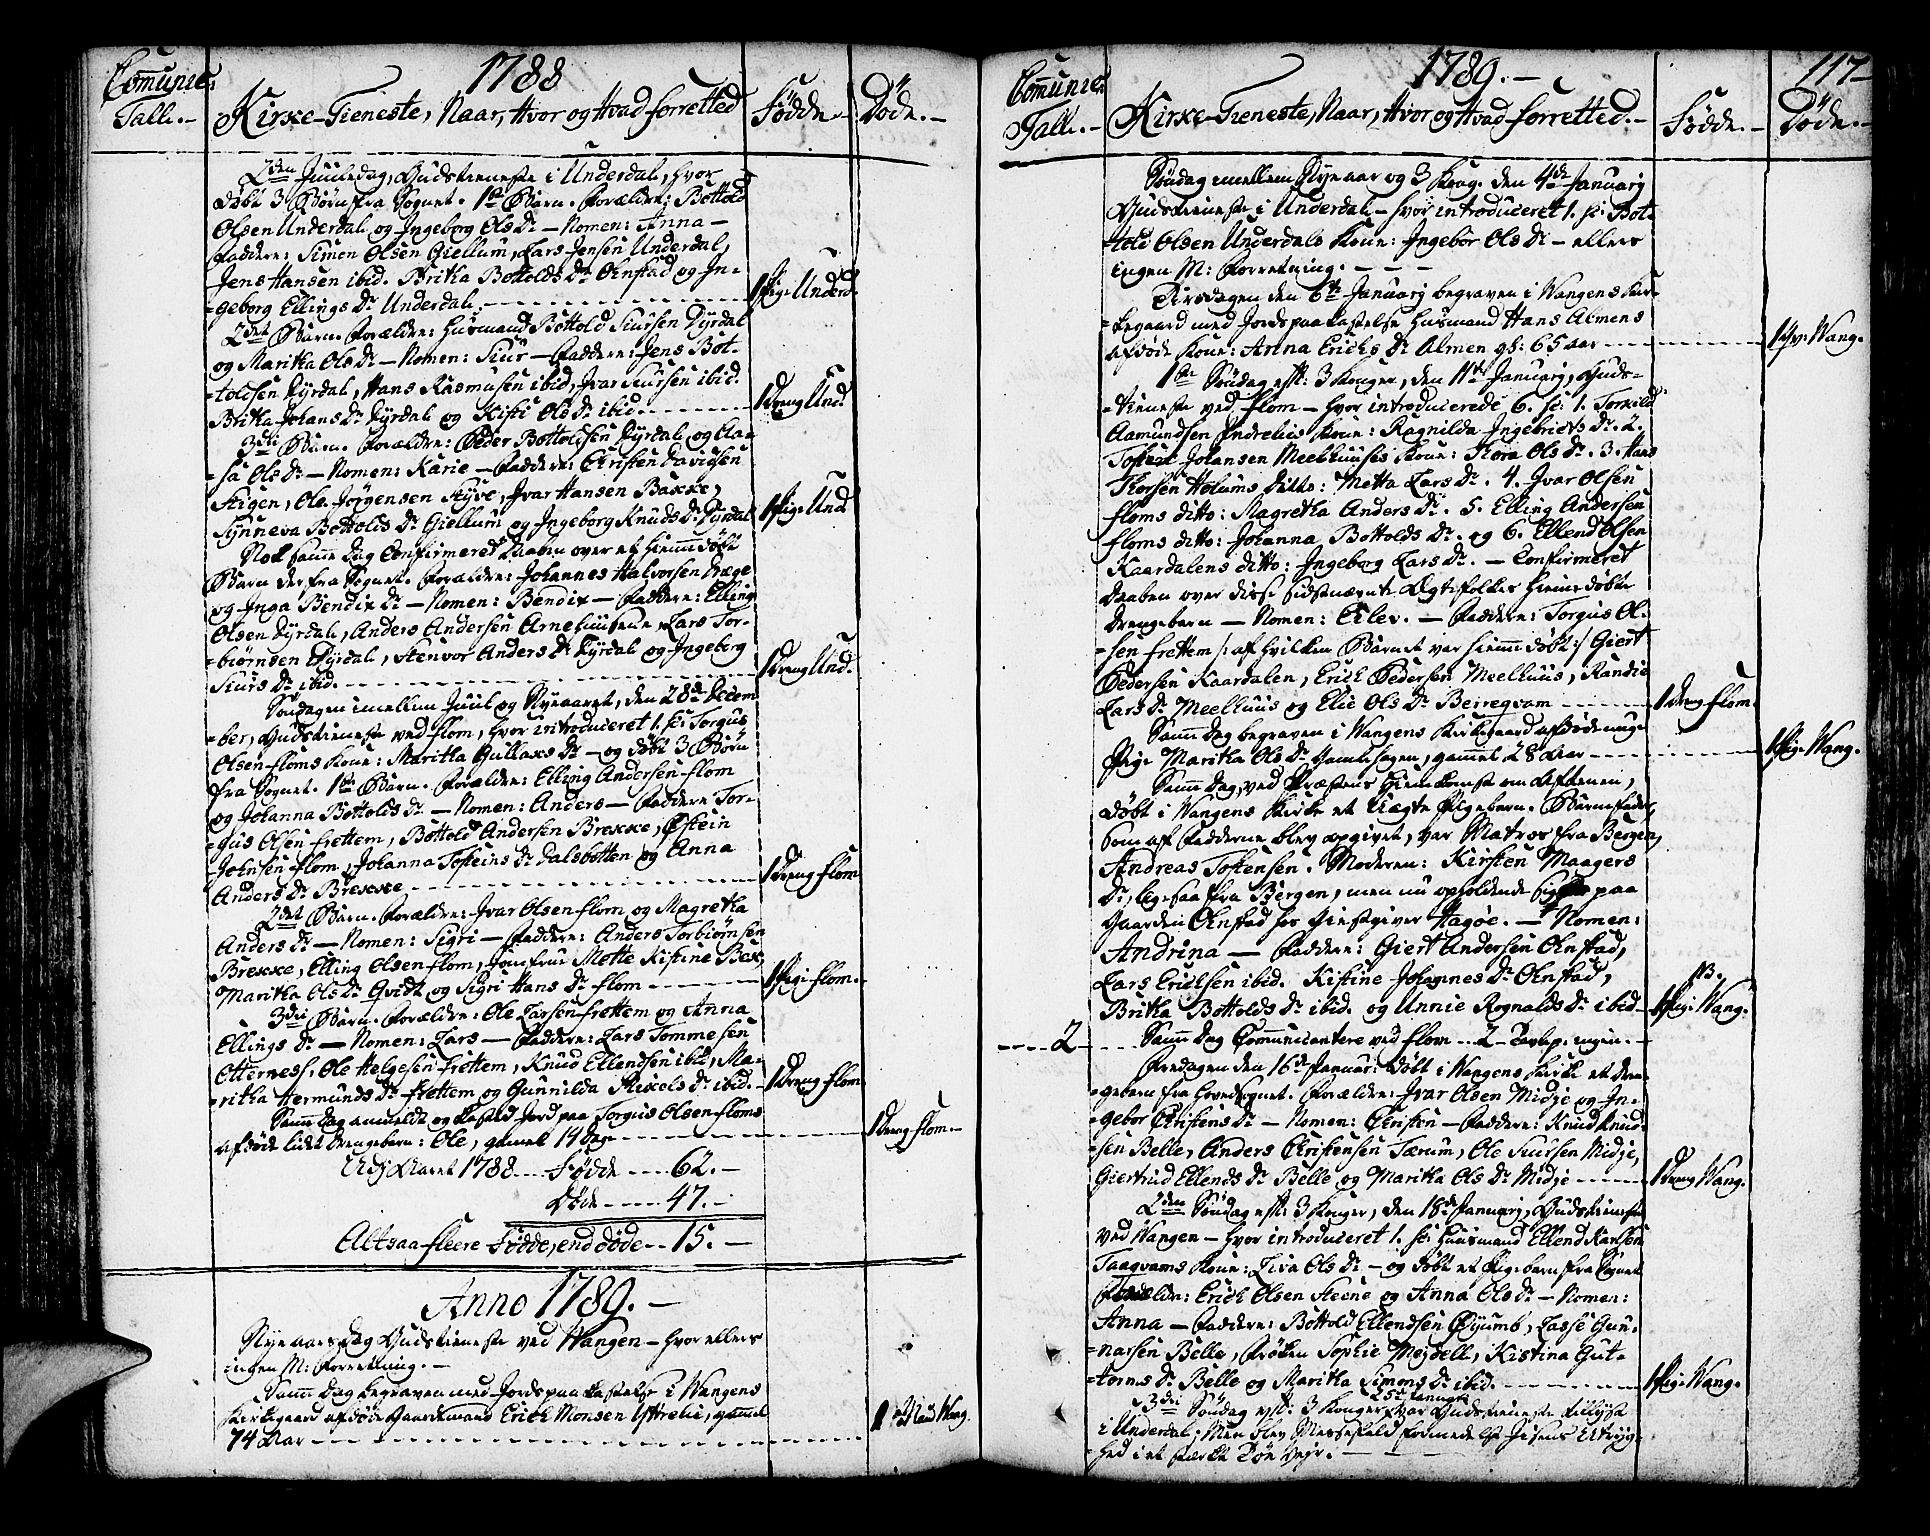 1788
Comunic:
Tall.-
Kirke-Tieneste, Naar, Hvor og Hvad forretted
Fødde.-
Døde.-
2den Juuledag, Gudstieneste i Underdal, hvor
døbt 3 Børn fra Sognet. 1te Barn. Forældre: Bottold
Olsen Underdal og Ingeborg Ols Dr - Nomen: Anna -
Faddere: Simon Olsen Giellum, Lars Jensen Underdal,
Jens Hansen ibid. Britha Bottolds Dr Onstad og In-
=geborg Ellings Dr Underdal.
1 Pige Underd.
2det Barn. Forældre: Huusmand Bottold Siursen Dyrdal
og Maritha Ols Dr - Nomen: Siur - Faddere: Jens Bot-
toldsen Dyrdal, Hans Rasmusen ibid, Ivar Siursen ibid.
Britha Johans Dr Dyrdal og Kisti Ols Dr ibid.
1 Dreng Und.
3die Barn. Forældre: Peder Bottoldsen Dyrdal og Aa=
=sa Ols Dr - Nomen: Karie - Faddere: Christen Davidsen
Stigen, Ole Jørgensen Styve, Ivar Hansen Bakke,
Synneva Bottolds Dr Giellum og Ingeborg Knuds Dr Dyrdal
1 Pige Und
Nok samme Dag Confirmeret Daaben over et hiemmedøbt
Barn der fra Sognet. Forældre: Johannes Halvorsen
og Inga Bendix Dr - Nomen: Bendix - Faddere: Elling
Olsen Dyrdal, Anders Andersen Arnehuusene, Lars Tor-
=biørnsen Dyrdal, Stenvor Anders Dr Dyrdal og Ingeborg
Siurs Dr ibid.
1 Dreng Und.
Søndagen imellem Juul og Nyeaaret, den 28de Decem
=ber, Gudstieneste ved Flom, hvor introduceret 1. sc: Torgius
Olsen Floms Kone: Maritha Gullaks Dr - og døbt 3 Børn
fra Sognet. 1te Barn. Forældre: Elling Andersen Flom
og Johanna Bottolds Dr - Nomen: Anders - Faddere Tor-
gius Olsen Frettem, Bottold Andersen Brekke, Østein
Johnsen Flom, Johanna Tosteins Dr Dalsbotten og Anna
Anders Dr Brekke
1 Dreng Flom
2det Barn. Forældre: Ivar Olsen Flom og Magretha
Anders Dr - Nomen: Sigri - Faddere: Anders Torbiørnsen
Brekke, Elling Olsen Flom, Jomfrue Mette Kistine Bex,
Maritha Ols Dr Qvidt og Sigri Hans Dr Flom
1 Pige Flom.
3die Barn. Forældre: Ole Larsen Frettem og Anna
Ellings Dr - Nomen: Lars - Faddere: Lars Tommesen
Otterness, Ole Helgesen Frettem, Knud Ellendsen ibid, Ma-
=ritha Hermunds Dr Frettem og Gunnilda Mikels Dr ibid.
1 Dreng Flom
Samme Dag anmeldt og kasted Jord paa Torgius Olsen Floms
afdøde lidet Drengebarn: Ole, gamel 14 Dage
1 Dreng Flom.-
Udi Aaret 1788 Fødde 62.-
Døde 47.-
Altsaa fleere Fødde, end døde 15.-
Anno 1789.-
Nyeaarsdag Gudstieneste ved Wangen - hvor ellers
ingen M: Forretning.-
Samme Dag begraven med Jords paakastelse i Wangens
Kirkegaard afdøde Gaardmand Erick Monsen Ytrelie, gammel
74 Aar
1 Mand Wang.
1789.-
117-
Comunic:
Tall.-
Kirke-Tieneste, Naar, Hvor og Hvad forretted.-
Fødde.-
Døde.-
Søndag imellem Nyeaar og 3 Kong. den 4de Januarj
Gudstieneste i Underdal - hvor introduceret 1. sc: Bot-
told Olsen Underdals Kone: Ingebor Ols Dr - ellers
ingen M: Forretning.
Tirsdagen den 6te Januarj begraven i Wangens Kir-
=kegaard med Jords paakastelse Huusmand Hans Almens
afdøde Kone: Anna Erichs Dr Almen gl: 65 aar
1 Wang.
1te Søndag efter 3 Konger, den 11te Januarj, Guds-
=tieneste ved Flom - hvor introducerede 6. sc: 1. Torkild
Aamundsen Indrelies Kone: Ragnilda Ingebrigts Dr. 2.
Tostein Johansen Meelhuuses Kone: Thora Ols Dr. 3. Hans
Thorsen Holums ditto: Metta Lars Dr. 4. Ivar Olsen
Floms ditto: Magretha Anders Dr. 5. Elling Andersen
Floms ditto: Johanna Bottolds Dr. og 6. Ellend Olsen
Kaardalens ditto: Ingeborg Lars Dr. - Confirmeret
Daaben over disse sidstnævnte Ægtefolkes hiemmedøbte
Drengebarn - Nomen: Eilev. - Faddere: Torgius Ol-
=sen Frettem /: af hvilken Barnet var hiemmedøbt :/ Giert
Pedersen Kaardalen, Erich Pedersen Meelhuus, Randie
Lars Dr Meelhuus og Elie Ols Dr Berreqvam
1 Dreng Flom.
Samme Dag begraven i Wangens Kirkegaard afdøde unge
Pige Maritha Ols Dr, gammel 28 Aar
1 Pige Wang.
Samme Dag, ved Præstens Hiemkomst om Aftenen,
døbt i Wangens Kirke et uægte Pigebarn. Barnefader,
som af Fadderne blev opgivet, var Matros fra Bergen,
Andreas Tostensen. Moderen: Kirsten Maagers
Dr, ligesaa fra Bergen, men nu opholdende sig paa
Gaarden Onstad hos Giestgiver Hagøe. - Nomen:
Andrina - Faddere: Giert Andersen Onstad,
Lars Ericksen ibid. Kistine Johannes Dr Onstad,
Britha Bottolds Dr ibid. og Unnie Rognalds Dr ibid
NB.
1 Pige Wang.
2
Samme Dag Communicantere ved Flom 2
Fredagen den 16de Januar: døbt i Wangens Kirke et Dren
=gebarn fra Hovedsognet. Forældre: Ivar Olsen Midje og In-
=gebor Christens Dr - Nomen: Christen - Faddere: Knud Knud-
sen Belle, Anders Christensen Tærum, Ole Siursen Midje,
Giertrud Ellends Dr Belle og Maritha Ols Dr Midje
1 Dreng Wang.
2den Søndag efter 3 Konger, den 18de Januarj, Gudstieneste
ved Wangen - hvor introduceret 1. sc: Huusmand Ellend Hansen
Taagvams Kone: Liva Ols Dr - og døbt et Pigebarn fra Sognet
Forældre: Erich Olsen Steene og Anna Ols Dr - Nomen:
Anna - Faddere: Bottold Ellendsen Øyumb, Lasse Gun-
=narsen Belle, Frøken Sophie Mejdell, Kistina Gut-
=torms Dr Belle og Maritha Simons Dr ibid.
1 Pige Wang.
25de Januarj
3die Søndag eft: 3 Konger, var Gudstieneste tillyst
i Underdal; Men blev Messefald formedelst Isens Utryg-
=hed i et stærkt Tøe Vejr.-